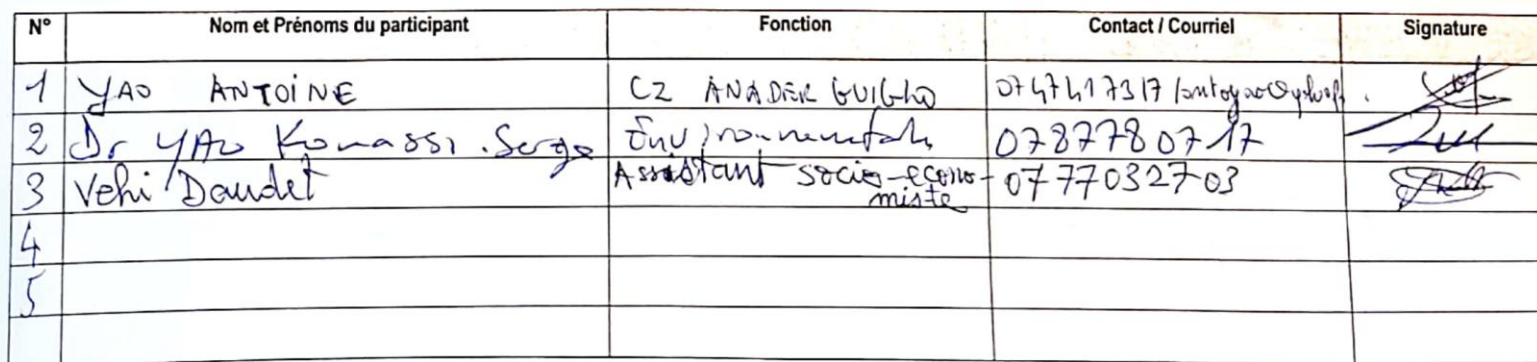 N° Nom et Prénoms du participant Fonction Contact / Courriel Signature
1 YAO ANTOINE CZ ANADER GUIGLO 0747417317
2 Dr YAO Komassi Serge 0787780717
3 Vehi Daudet Assistant socio-econo- 0777032703
miste
4
5